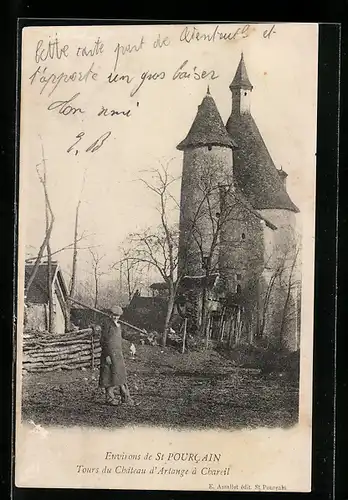 Cette carte part de Cientoulb et
t'apporte un gros baiser
Mon aimé
E B
Environs de St POURÇAIN
Tours du Château d'Artange à Chareil
édit. St Pourçain